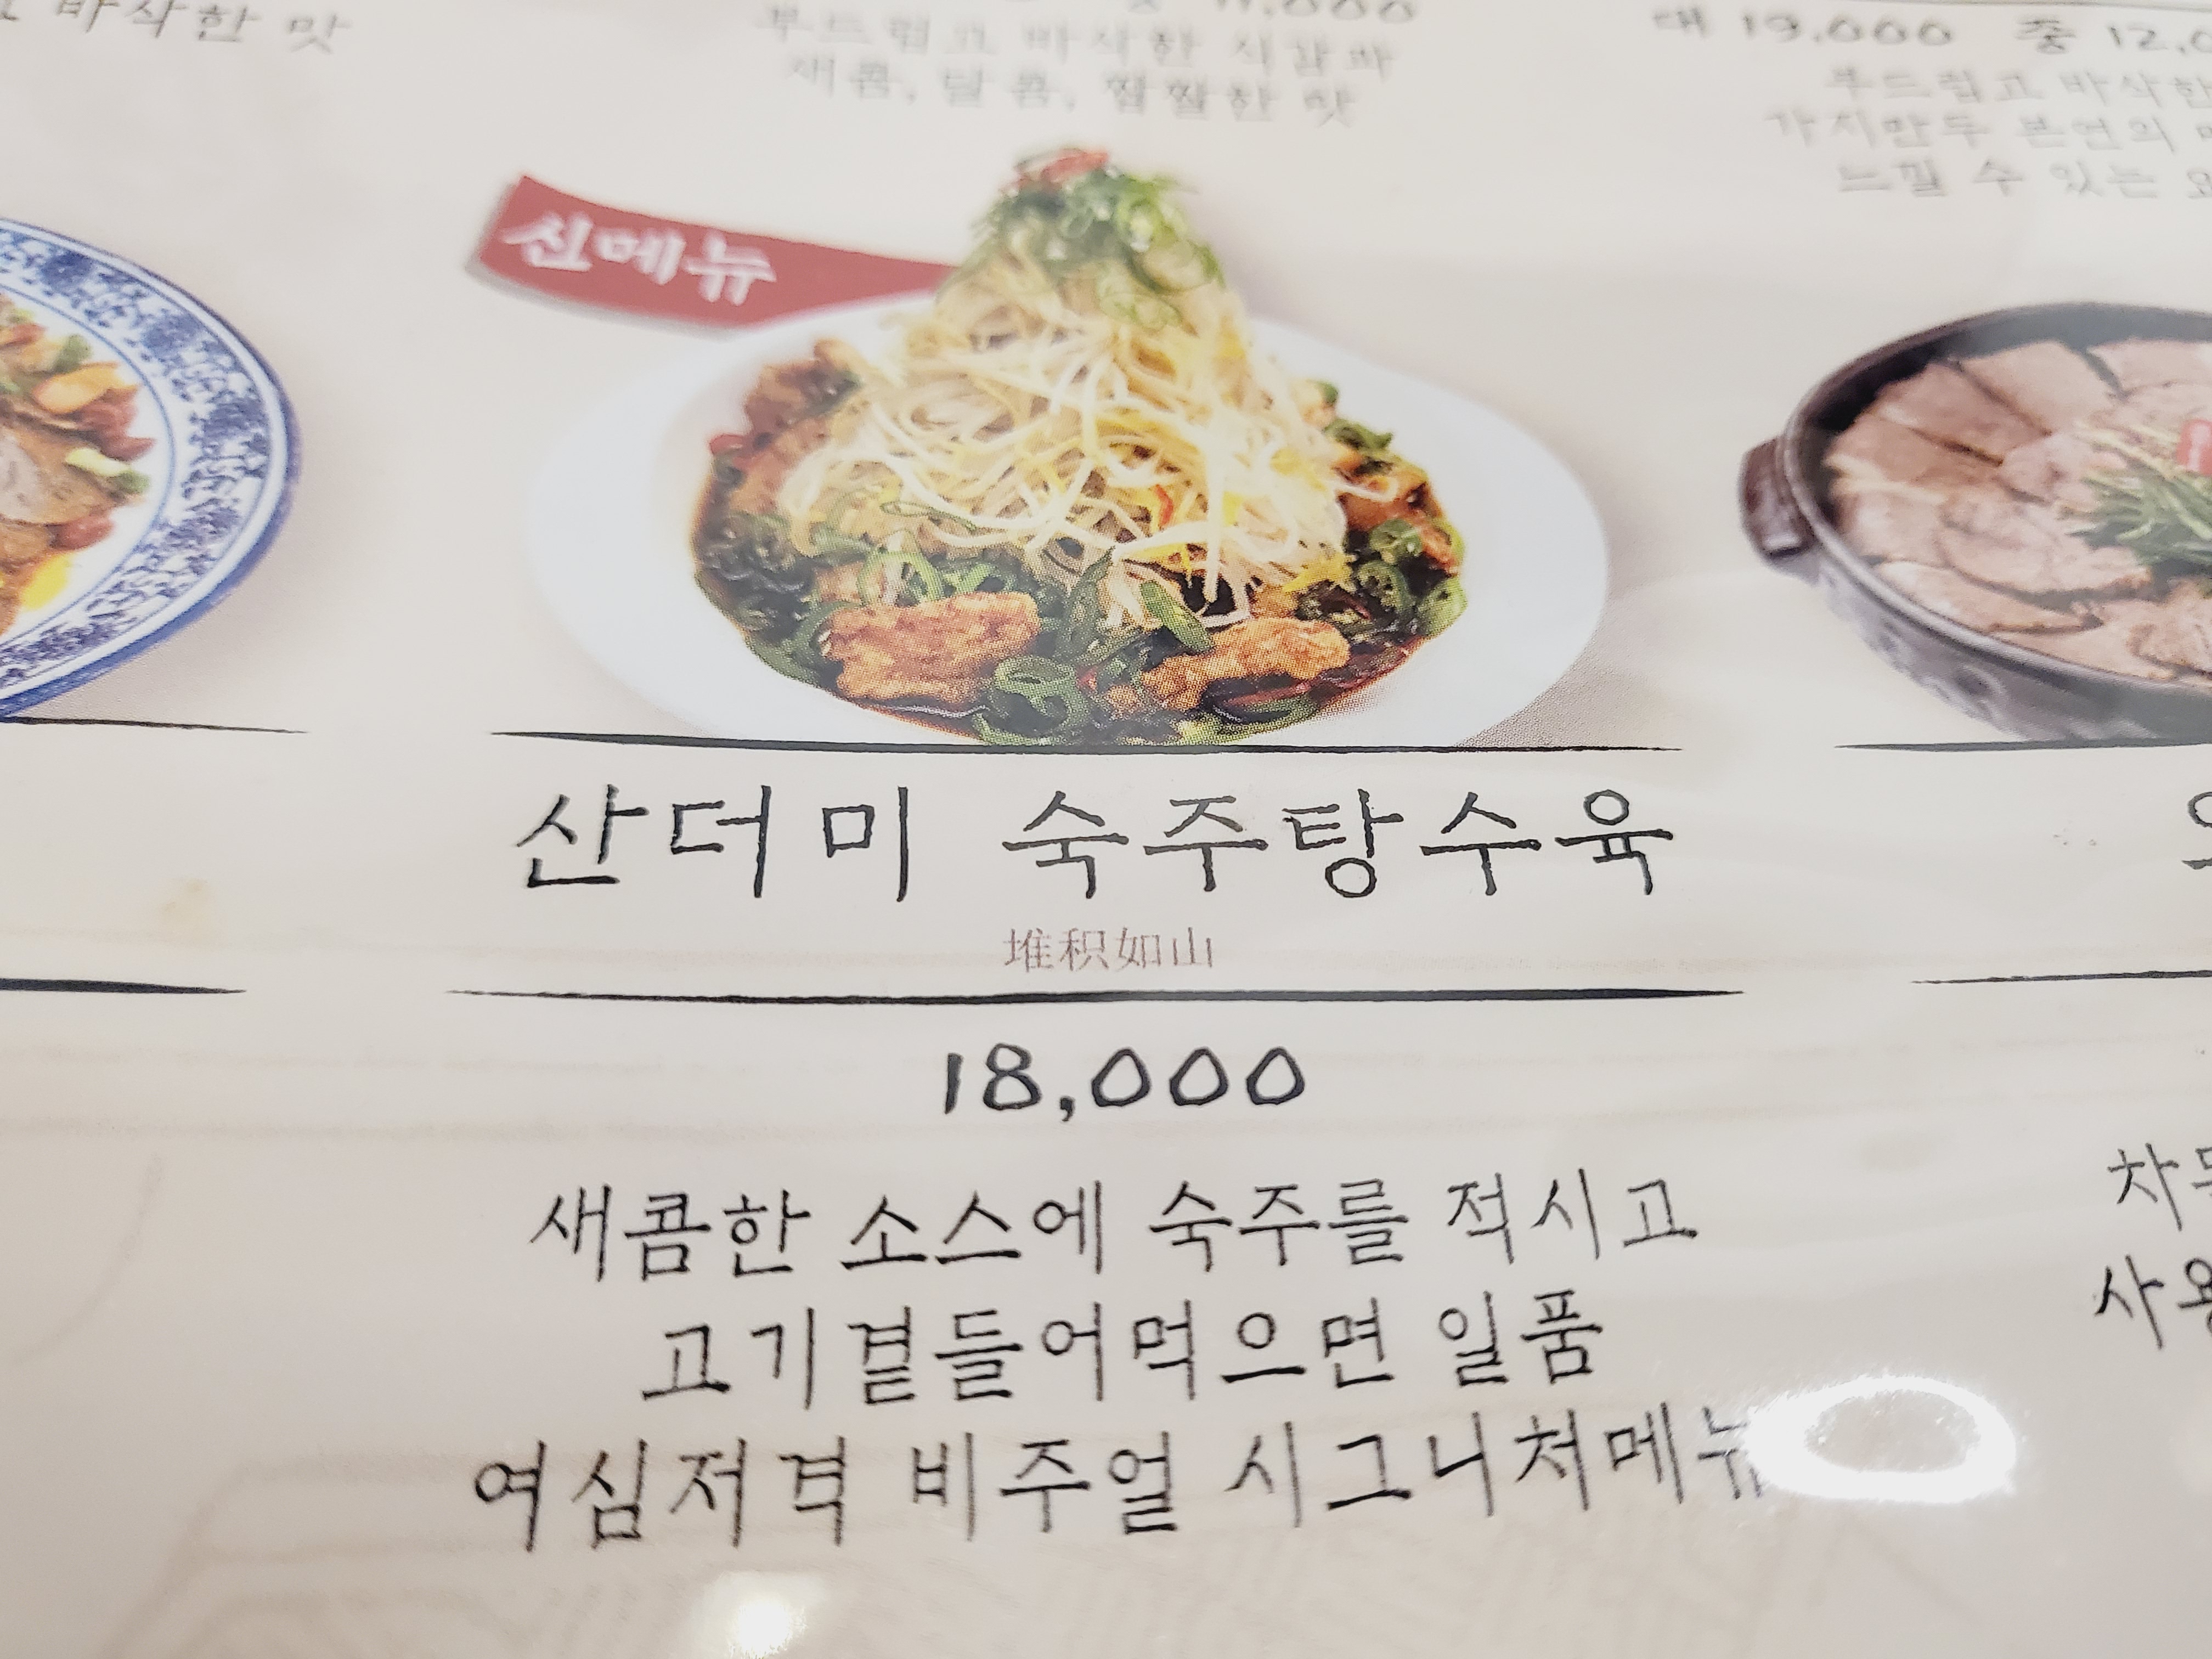 바삭한 맛
11,000
부드럽고 바삭한 식감과
새콤, 달콤, 짭짤한 맛
대 19,000 중
부드럽고 바삭한
가지만두 본연의
느낄 수 있는
신메뉴
산더미 숙주탕수육
堆积如山
18,000
새콤한 소스에 숙주를 적시고
고기 곁들어먹으면 일품
여심저격 비주얼 시그니처메뉴